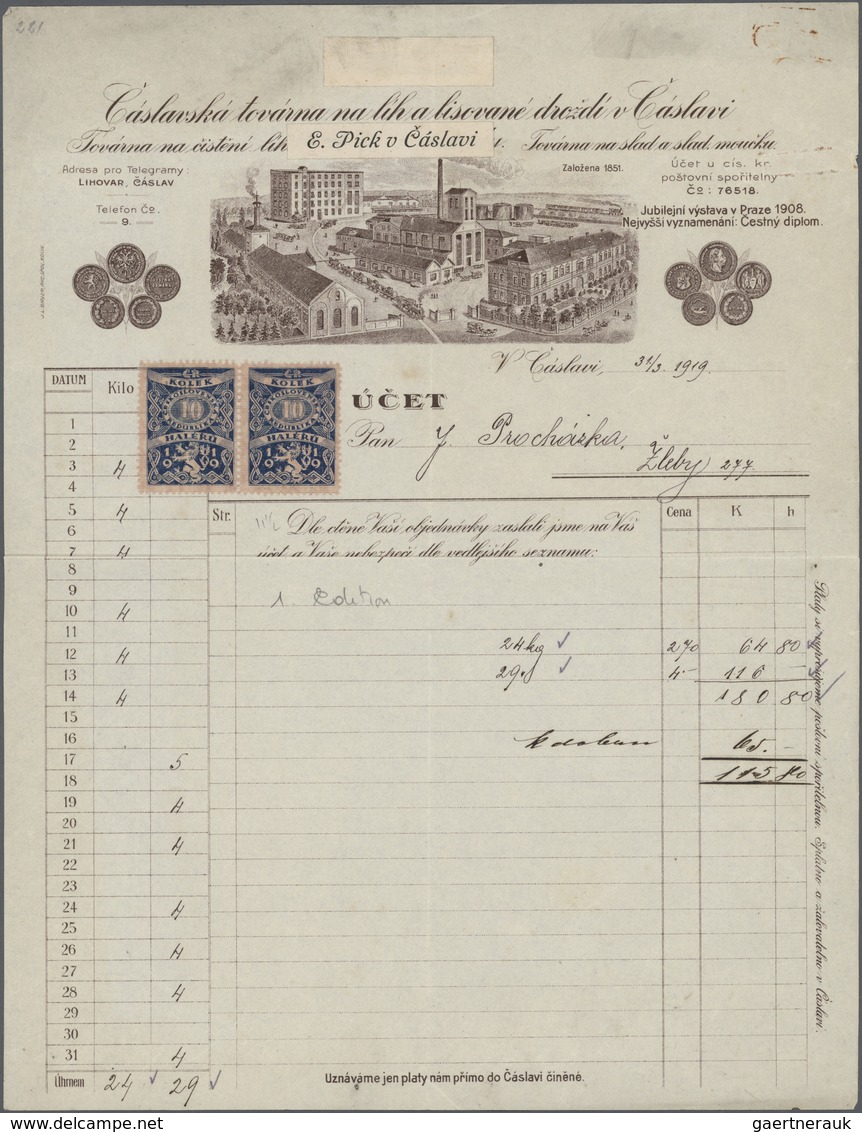 221
Čáslavská továrna na líh a lisované droždí v Čáslavi
Továrna na čistění líh
E. Pick v Čáslavi
Továrna na slad a slad. moučku.
Adresa pro Telegramy:
LIHOVAR, ČÁSLAV
Telefon Čo.
9.
Založena 1851.
Účet u cís. kr.
poštovní spořitelny
Čo: 76518.
Jubilejní výstava v Praze 1908.
Nejvyšší vyznamenání: Čestný diplom.
V Čáslavi, 31/3. 1919.
ÚČET
Pan J. Procházka,
Žleby 277.
KOLEK
10
HALÉRŮ
1919
KOLEK
10
HALÉRŮ
1919
DATUM Kilo
1
2
3 4
4
5 4
6
7 4
8
9
10 4
11
12 4
13
14 4
15
16
17 5
18
19 4
20
21 4
22
23
24 4
25
26 4
27
28 4
29
30
31 4
Úhrnem 24 29
Str. Dle ctěné Vaší objednávky zaslali jsme na Váš Cena K h
účet a Vaše nebezpečí dle vedlejšího seznamu:
1. Edition
24kg 270 64 80
29 4- 116 —
180 80
65. -
115 80
Platy se vyprošujeme poštovní spořitelnou. Splatno a žalovatelno v Čáslavi.
Uznáváme jen platy nám přímo do Čáslavi činěné.
gaertnerauk